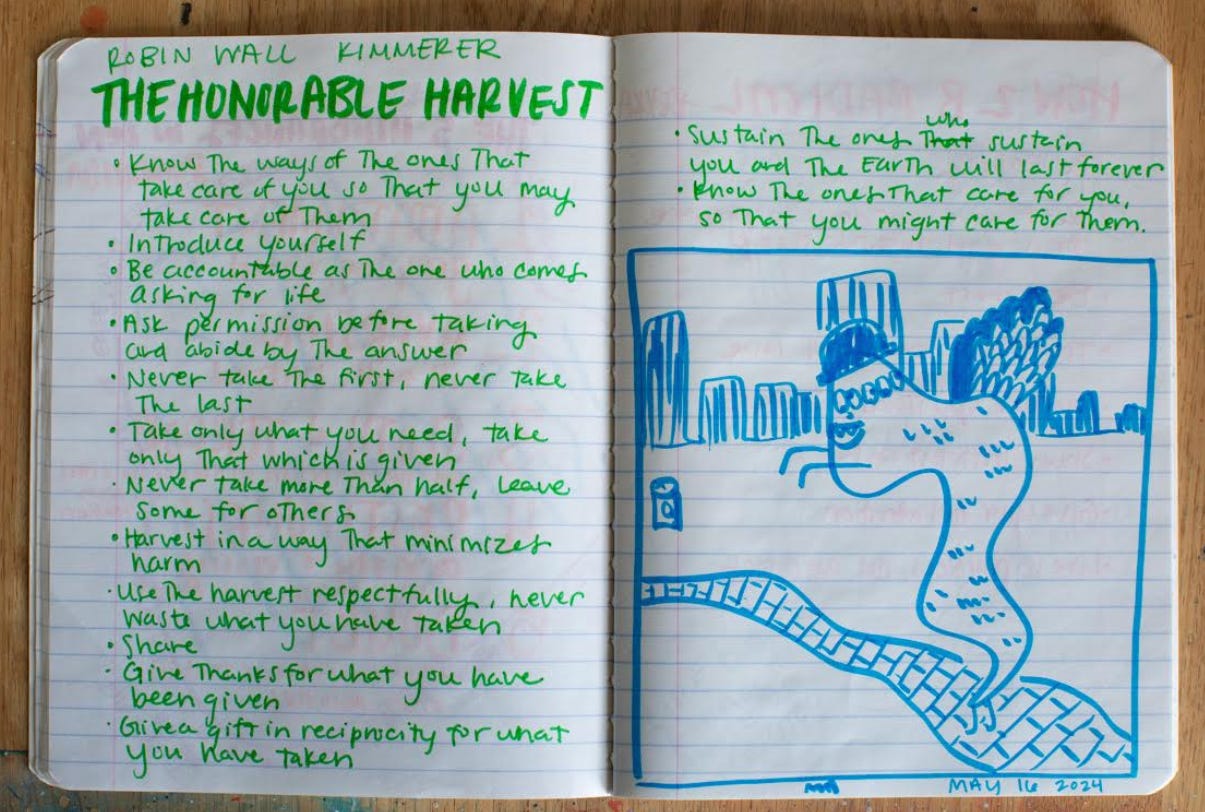 ROBIN WALL KIMMERER
THE HONORABLE HARVEST
• Know The ways of The ones That
take care of you so That you may
take care of Them
• Introduce yourself
• Be accountable as The one who comes
asking for life
• Ask permission before taking
and abide by The answer
• Never take The first, never take
The last
• Take only what you need, take
only That which is given
• Never take more Than half, leave
some for others
• Harvest in a way That minimizes
harm
• Use The harvest respectfully, never
waste what you have taken
• Share
• Give Thanks for what you have
been given
• Give a gift in reciprocity for what
you have taken
who
• Sustain The ones That sustain
you and The Earth will last forever
• Know The ones That care for you,
so That you might care for Them.
MAY 16 2024